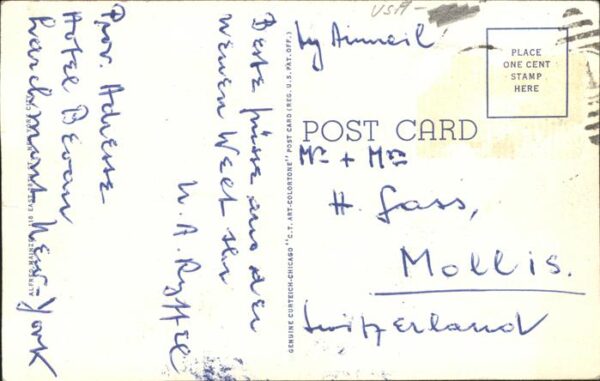 Prov. Adresse
Hotel Bevan
Larchmont New-York
Beste Grüsse aus der
neuen Welt
ALFRED MAINZER
GENUINE CURTEICH-CHICAGO "C.T. ART-COLORTONE" POST CARD (REG. U.S. PAT. OFF.)
USA
by Airmail
PLACE
ONE CENT
STAMP
HERE
POST CARD
Mr + Mrs
H. Gass,
Mollis.
Switzerland